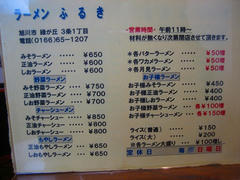 ラーメン ふるき
旭川市 緑が丘 3条1丁目
電話(0166)65-1207
・営業時間・午前11時〜
材料が無くなり次第閉店させて頂きます。
ラーメン
みそラーメン ・・・ ¥650
正油ラーメン ・・・ ¥600
しおラーメン ・・・ ¥600
野菜ラーメン
みそ野菜ラーメン ・・ ¥750
正油野菜ラーメン ・・ ¥700
しお野菜ラーメン ・・ ¥700
チャーシューメン
みそチャーシュー ・・ ¥850
正油チャーシュー ・・ ¥800
しおチャーシュー ・・ ¥800
もやしラーメン
正油もやしラーメン ・ ¥650
しおもやしラーメン ・ ¥650
※各バターラーメン ・・・ ¥50増
※各ワカメラーメン ・・・ ¥50増
※各月見ラーメン ・・・ ¥50増
お子様ラーメン
お子様みそラーメン ・・・ ¥450
お子様正油ラーメン ・・・ ¥400
お子様しおラーメン ・・・ ¥400
お子様野菜ラーメン 各¥100増
各ラーメン大盛り ・・・ ¥100増
各ラーメン特大盛り ・・ ¥150増
ライス(普通) ・・・ ¥150
ライス(大) ・・・ ¥200
定休日 毎日曜日